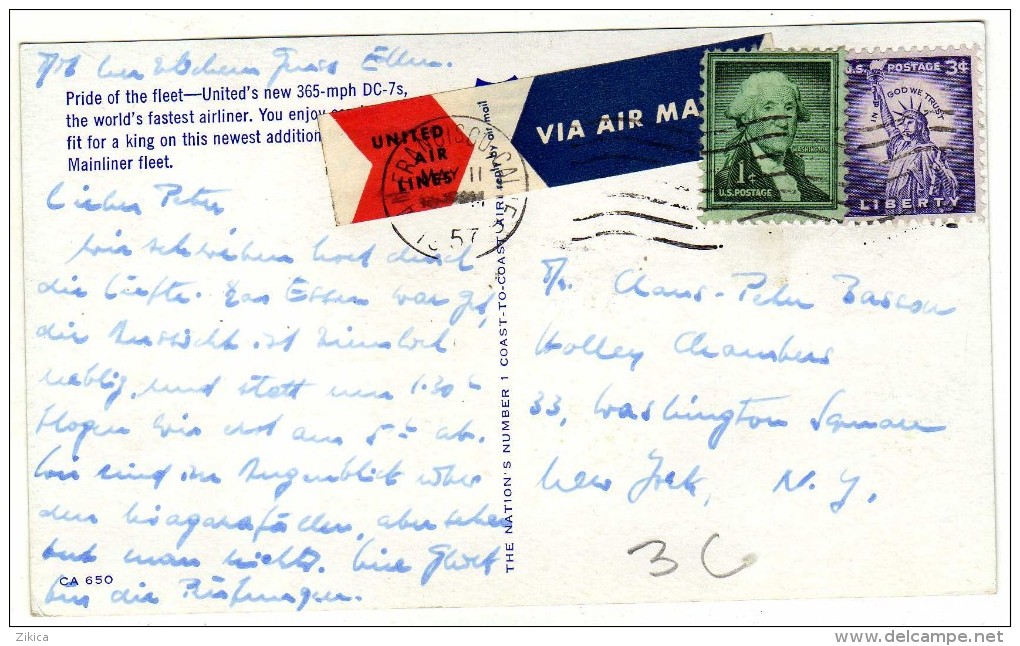 Ellen.
Pride of the fleet—United's new 365-mph DC-7s,
the world's fastest airliner. You enjoy
fit for a king on this newest addition
Mainliner fleet.
Lieber Peter
wir schweben hoch durch
die Lüfte. Das Essen war gut,
die Aussicht ist ziemlich
neblig, und statt um 1.30
flogen wir erst um 5 ab.
Wir sind im Augenblick über
den Niagarafällen, aber sehen
tut man nichts. Viel Glück
für die Prüfungen.
CA 650
THE NATION'S NUMBER 1 COAST-TO-COAST AIR
UNITED
AIR
LINES
reply by air mail
VIA AIR MA
SAN FRANCISCO CALIF
MAY 11
1957
WASHINGTON
1¢
U.S. POSTAGE
U.S. POSTAGE 3¢
IN GOD WE TRUST
LIBERTY
Claus-Peter
Holley Chambers
33, Washington Square
New York, N.Y.
30
Zikica
www.delcampe.net